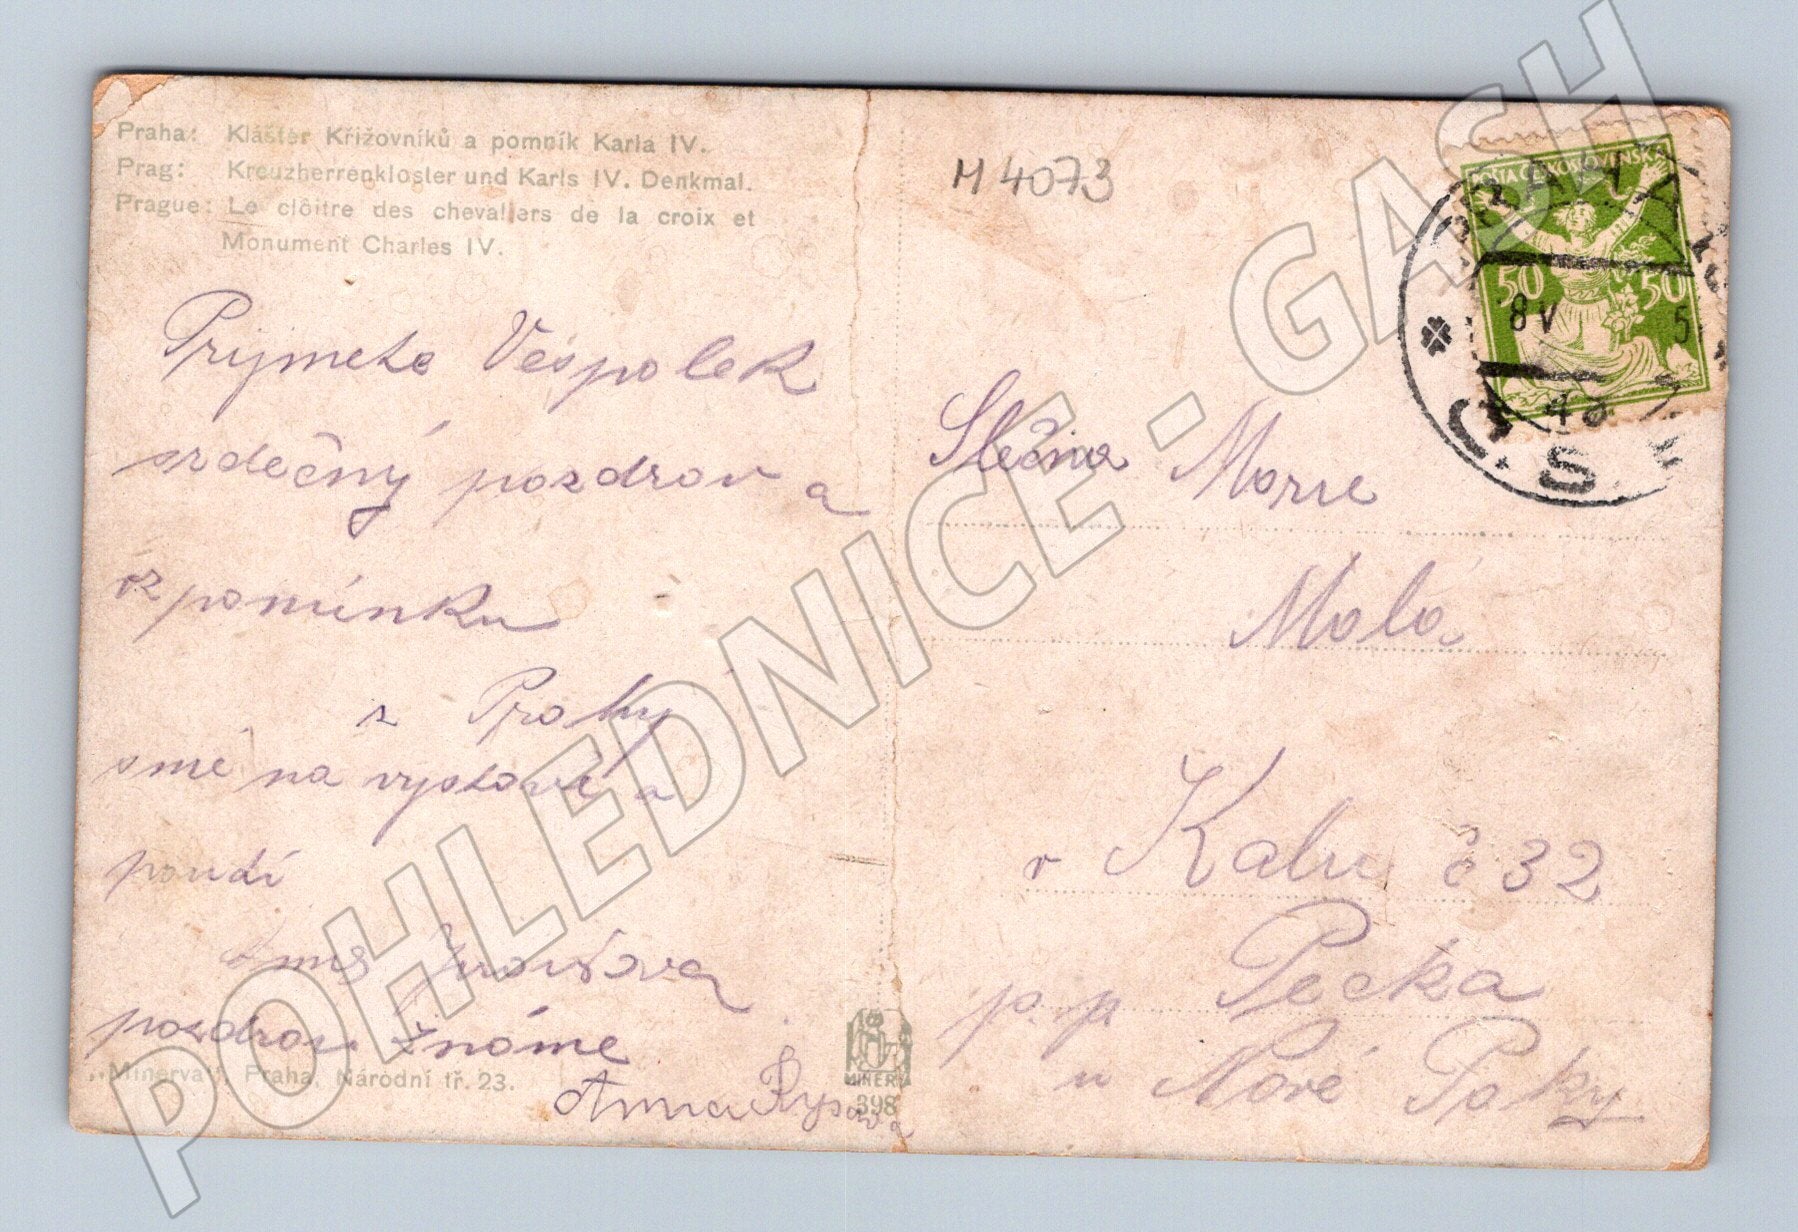 Praha: Klášter Křižovníků a pomník Karla IV.
Prag: Kreuzherrenkloster und Karls IV. Denkmal.
Prague: Le clôitre des chevaliers de la croix et
Monument Charles IV.
M 4073
POŠTA ČESKOSLOVENSKÁ
50 50
PRAHA
8 V
Č.S.
Prijmete Vespolek
srdečný pozdrav a
vzpomínku
z Prahy
sme na vystavě a
pozdrav známe
Anna Rypa
„Minerva", Praha, Národní tř. 23.
MINERVA
398
Slečna
Malá
v Kalu č 32
p. p Pecka
u Nové Paky
POHLEDNICE - GASH